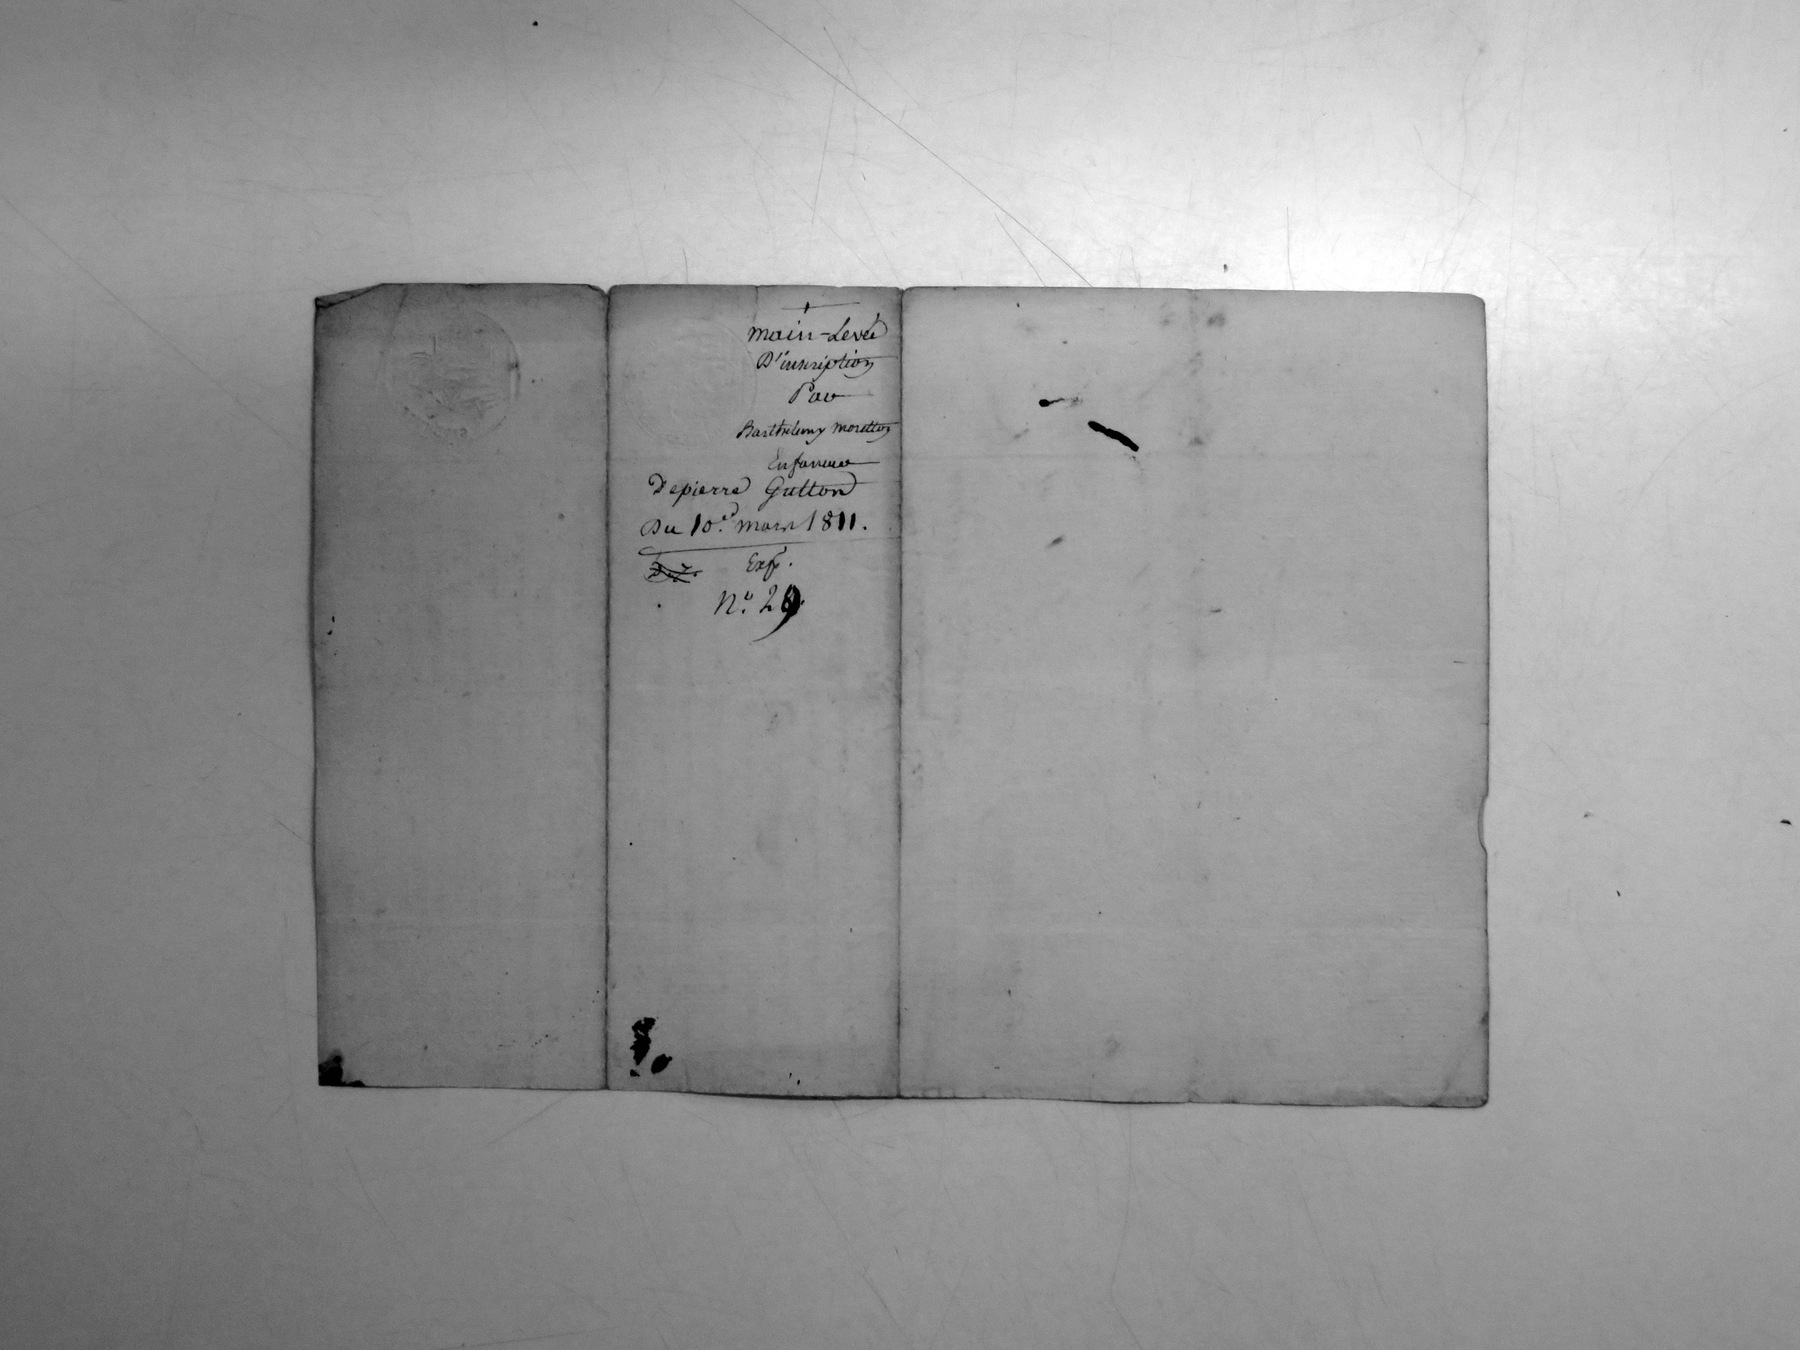 Main-Levée
D'inscription
Par
Barthelemy Moretton
En faveur
De pierre Gutton
Du 10.e mars 1811.
Exp.
N.o 29